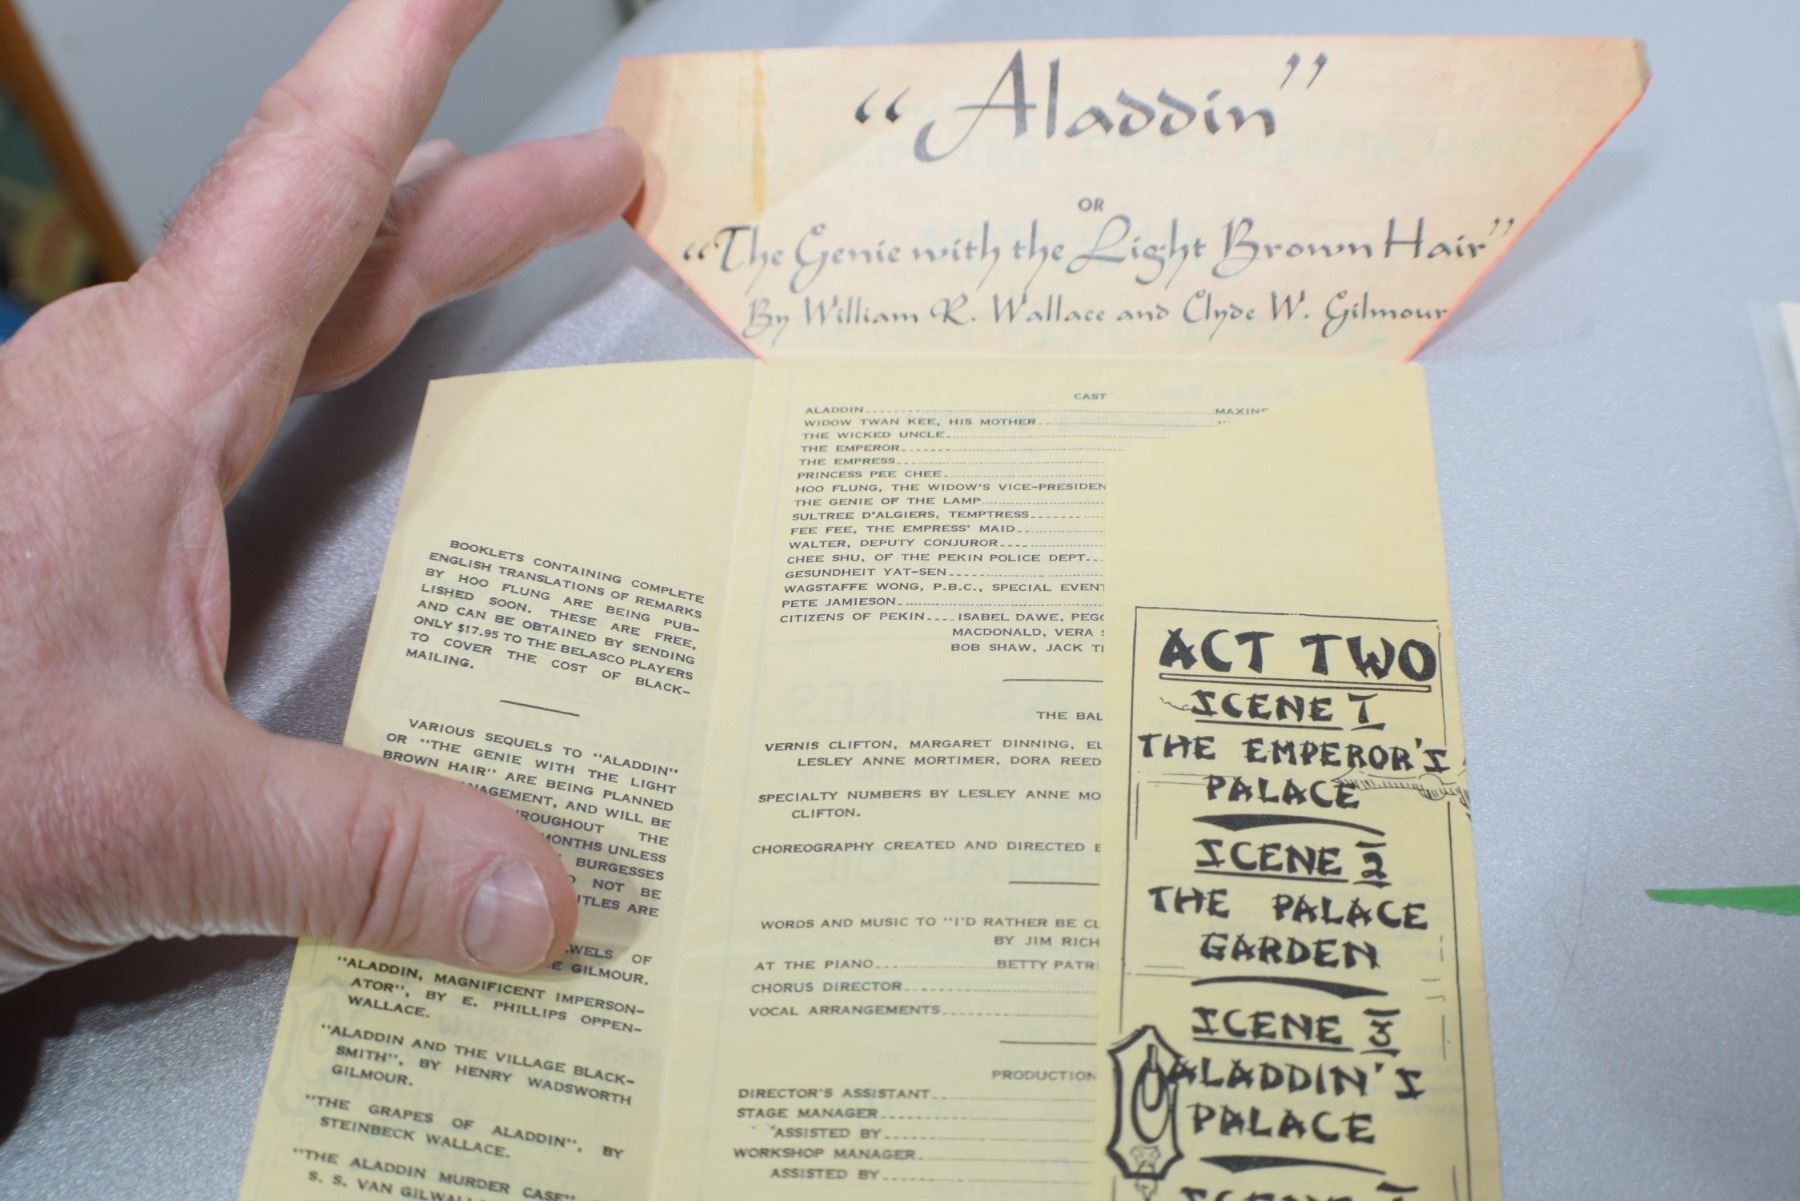 "Aladdin"
OR
"The Genie with the Light Brown Hair"
By William R. Wallace and Clyde W. Gilmour
BOOKLETS CONTAINING COMPLETE
ENGLISH TRANSLATIONS OF REMARKS
BY HOO FLUNG ARE BEING PUB-
LISHED SOON. THESE ARE FREE,
AND CAN BE OBTAINED BY SENDING
ONLY $17.95 TO THE BELASCO PLAYERS
TO COVER THE COST OF BLACK-
MAILING.
VARIOUS SEQUELS TO "ALADDIN"
OR "THE GENIE WITH THE LIGHT
BROWN HAIR" ARE BEING PLANNED
AND WILL BE
THE
MONTHS UNLESS
BURGESSES
NOT BE
ARE
OF
GILMOUR.
"ALADDIN, MAGNIFICENT IMPERSON-
ATOR", BY E. PHILLIPS OPPEN-
WALLACE.
"ALADDIN AND THE VILLAGE BLACK-
SMITH", BY HENRY WADSWORTH
GILMOUR.
"THE GRAPES OF ALADDIN", BY
STEINBECK WALLACE.
"THE ALADDIN MURDER CASE"
S. S. VAN
CAST
ALADDIN
WIDOW TWAN KEE, HIS MOTHER
THE WICKED UNCLE
THE EMPEROR
THE EMPRESS
PRINCESS PEE CHEE
HOO FLUNG, THE WIDOW'S VICE-PRESIDEN
THE GENIE OF THE LAMP
SULTREE D'ALGIERS, TEMPTRESS
FEE FEE, THE EMPRESS' MAID
WALTER, DEPUTY CONJUROR
CHEE SHU, OF THE PEKIN POLICE DEPT.
GESUNDHEIT YAT-SEN
WAGSTAFFE WONG, P.B.C., SPECIAL EVENT
PETE JAMIESON
CITIZENS OF PEKIN ISABEL DAWE, PEG
MACDONALD, VERA
BOB SHAW, JACK
THE BAL
VERNIS CLIFTON, MARGARET DINNING, EL
LESLEY ANNE MORTIMER, DORA REED
SPECIALTY NUMBERS BY LESLEY ANNE MO
CLIFTON.
CHOREOGRAPHY CREATED AND DIRECTED
WORDS AND MUSIC TO "I'D RATHER BE CL
BY JIM RICH
AT THE PIANO BETTY PATR
CHORUS DIRECTOR
VOCAL ARRANGEMENTS
PRODUCTION
DIRECTOR'S ASSISTANT
STAGE MANAGER
ASSISTED BY
WORKSHOP MANAGER
ASSISTED BY
ACT TWO
SCENE 1
THE EMPEROR'S
PALACE
SCENE 2
THE PALACE
GARDEN
SCENE 3
ALADDIN'S
PALACE